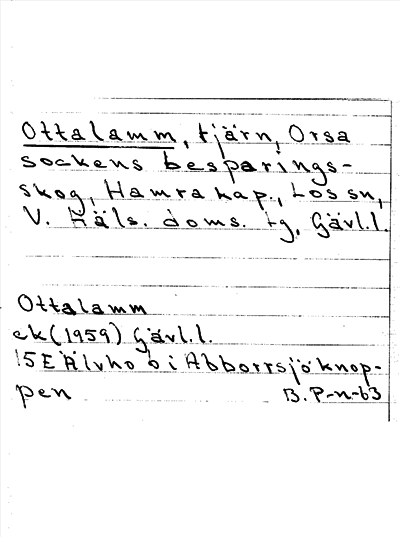 Ottalamm, tjärn, Orsa
sockens besparings-
skog, Hamra kap., Los sn,
V. Häls. doms. tg, Gävl.l.
Ottalamm
ek (1959) Gävl.l.
15E Älvho b i Abborrsjöknop-
pen B. P-n-63